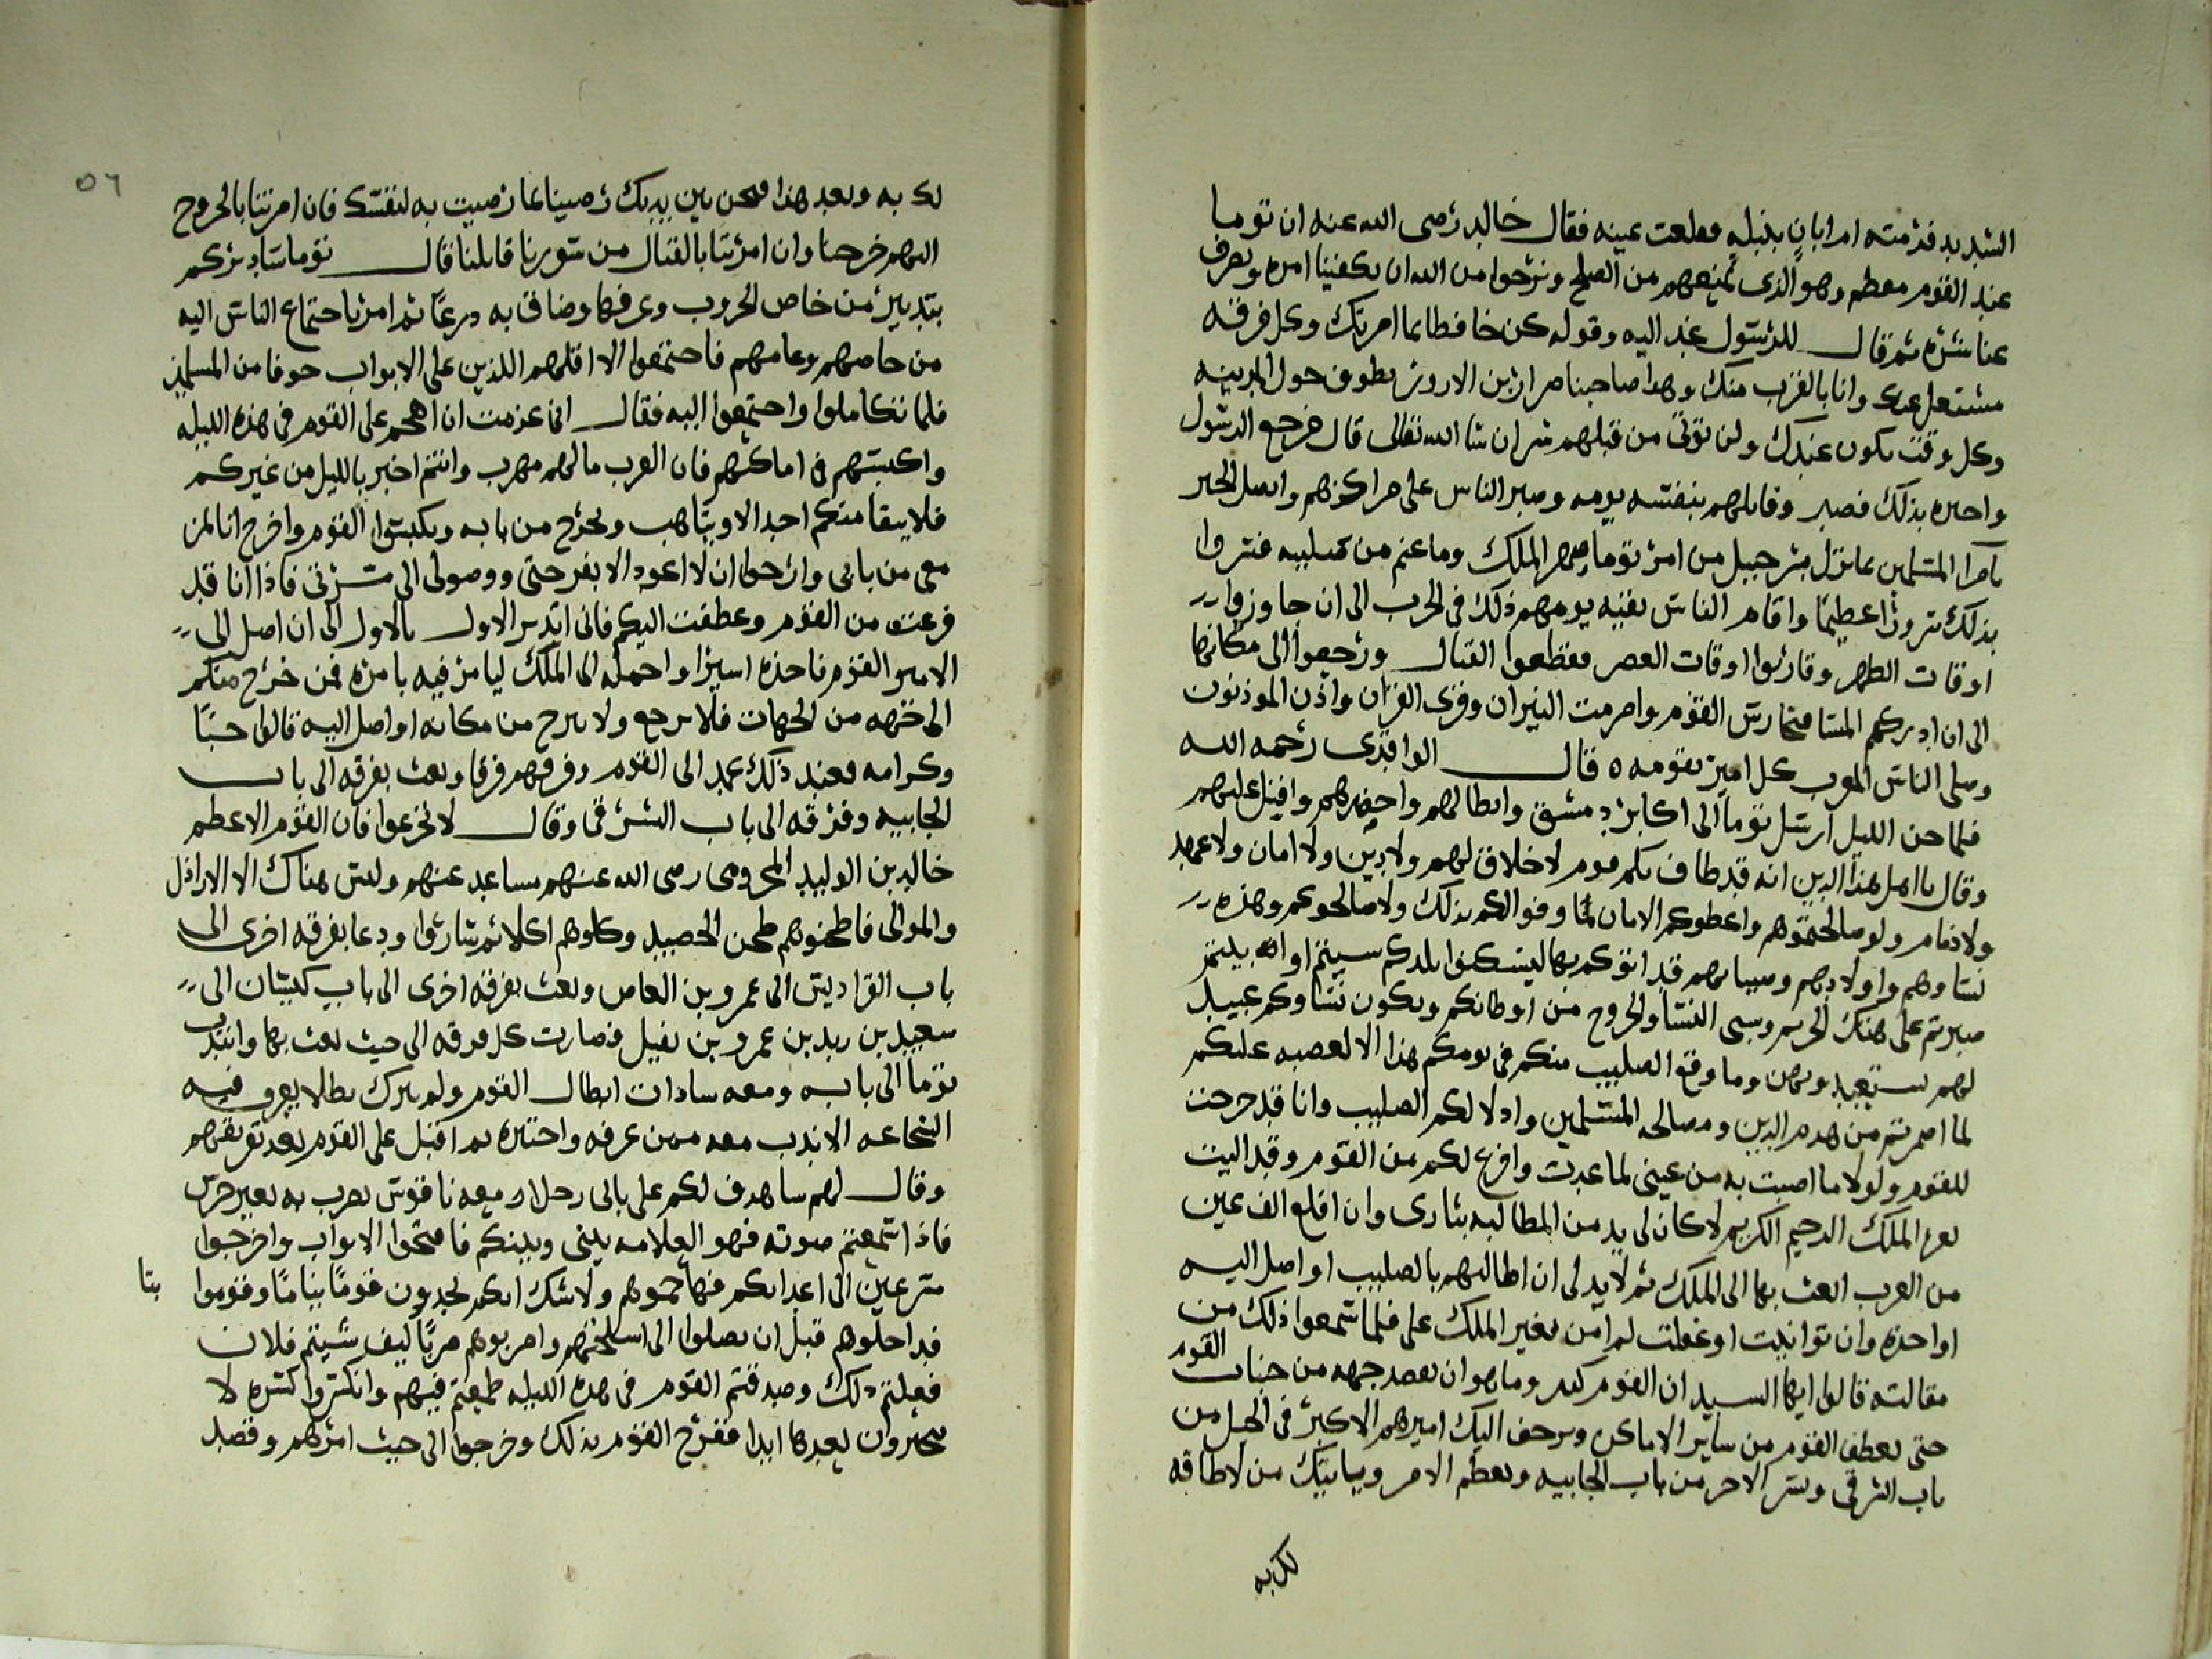 الشديد فرمته ام ابان بنبله فقلعت عينه فقال خالد رضى الله عنه ان توما
عند القوم معظم وهو الذى يمنعهم من الصلح ونرجوا من الله ان يكفينا امره ويصرف
عنا شره ثم قال للرسول عد اليه وقوله كن حافظا بما امرتك وكل فرقه
مشتعل عنك وانا بالقرب منك وهذا صاحبنا ضرار بن الازور يطوف حول المدينه
وكل وقت يكون عندك ولن توتى من قبلهم شر ان شا الله تعالى قال فرجع الرسول
واخبره بذلك فصبر وقاتلهم بنفسه يومه وصبر الناس على مراكزهم واتصل الخبر
بامرا المسلمين بما نزل بشرحبيل من امر توما صهر الملك وما غنم من صليبه فسروا
بذلك سرورا عظيما واقام الناس بقيه يومهم ذلك فى الحرب الى ان جاوزوا
اوقات الظهر وقاربوا اوقات العصر فقطعوا القتال ورجعوا الى مكانها
الى ان ادركهم المسا فتحارس القوم واضرمت النيران وقرى القران واذن الموذنون
وصلى الناس المغرب كل امير بقومه ه قال الواقدى رحمه الله
فلما جن الليل ارسل توما الى اكابر دمشق وابطالهم واحضرهم واقبل عليهم
وقال يا اهل هذا الدين انه قد طاف بكم قوم لا خلاق لهم ولا دين ولا امان ولا عهد
ولا ذمام ولو صالحتموهم واعطوكم الامان لما وفوا لكم بذلك ولا صالحوكم وهذه
نساوهم واولادهم وصبيانهم قد اتوكم بها ليسكنوا بلدكم سيتم او ابيتم
صبرتم على هتك الحريم وسبى النسا والخروج من اوطانكم ويكون نساوكم عبيد
لهم وما وقع الصليب منكم فى يومكم هذا الا لغضبه عليكم
لما اضمرتم من هدم الدين ومصالحه المسلمين واذلالكم الصليب وانا قد خرجت
للقوم ولولا ما اصبت به من عينى لما عدت وافرغ لكم من القوم وقد اليت
بعز الملك الرحيم الكريم لا كان لى بد من المطالبه بثارى وان اقلع الف عين
من العرب ابعث بها الى الملك ثم لا بد لى ان اطالبهم بالصليب او اصل اليه
او اخذه وان توانيت او غفلت لم امن تغير الملك على فلما سمعوا ذلك من
مقالته قالوا ايها السيد ان القوم كثير وما هو ان نقصد جهه من جنبات القوم
حتى يعطف القوم من ساير الاماكن ويزحف اليك اميرهم الاكبر فى الخيل من
باب الشرقى ويسير الاخر من باب الجابيه ويعظم الامر وياتيك من لا طاقه
لك به
٥٦
لك به وبعد هذا فنحن بين يديك رضينا بما رضيت به لنفسك فان امرتنا بالخروج
اليهم خرجنا وان امرتنا بالقتال من سورنا قاتلنا قال توما سادبركم
بتدبير من خاض الحروب وعرفها وضاق به درعا ثم امر باجتماع الناس اليه
من خاصهم وعامهم فاجتمعوا الا اقلهم اللذين على الابواب خوفا من المسلمين
فلما تكاملوا واجتمعوا اليه فقال انى عزمت ان اهجم على القوم فى هذه الليله
واكبسهم فى اماكنهم فان العرب ما لهم مهرب وانتم اخبر بالليل من غيركم
فلا يبقا منكم احد الا ويتاهب ويخرج من بابه ويكبسوا القوم واخرج انا بمن
معى من بابى وارجوا ان لا اعود الا بفرحتى ووصولى الى مسرتى فاذا انا قد
فرغت من القوم وعطفت اليكم فانى ابتدى الاول بالاول الى ان اصل الى
الامير القوم فاخذه اسيرا واحمله الى الملك ليامر فيه بامره فمن خرج منكم
الى جهه من الجهات فلا يرجع ولا يبرح من مكانه او اصل اليه قالوا حبا
وكرامه فعند ذلك عمد الى القوم وفرقهم فرقا وبعث بفرقه الى باب
الجابيه وفرقه الى باب الشرقى وقال لا تجزعوا فان القوم الاعظم
خالد بن الوليد المخزومى رضى الله عنهم مساعد عنهم وليس هناك الا الاراذل
والموالى فاطحنوهم طحن الحصيد وكلوهم اكلا ثم ساروا ودعا بفرقه اخرى الى
باب الفراديس الى عمرو بن العاص وبعث بفرقه اخرى الى باب كيسان الى
سعيد بن زيد بن عمرو بن نفيل فصارت كل فرقه الى حيث بعث بها وانتدب
توما الى بابه ومعه سادات ابطال القوم ولم يترك بطلا يعرف فيه
الشجاعه الا ندب معه ممن عرفه واختبره ثم اقبل على القوم بعد تفريقهم
وقال لهم ساهدف لكم على بابى رجلا ومعه ناقوس يضرب به بغير حرس
فاذا سمعتم صوته فهو العلامه بينى وبينكم فافتحوا الابواب واخرجوا
مسرعين الى اعدائكم فهاجموهم ولا شك انكم تجدون قوما نياما وقوموا يتا
فداخلوهم قبل ان يصلوا الى اسلحتهم واضربوهم ضربا كيف شيتم فلان
فعلتم ذلك وصدقتم القوم فى هذه الليله طمعتم فيهم وانكسروا كسره لا
يجبرون بعدها ابدا ففرح القوم بذلك وخرجوا الى حيث امرهم وقصد